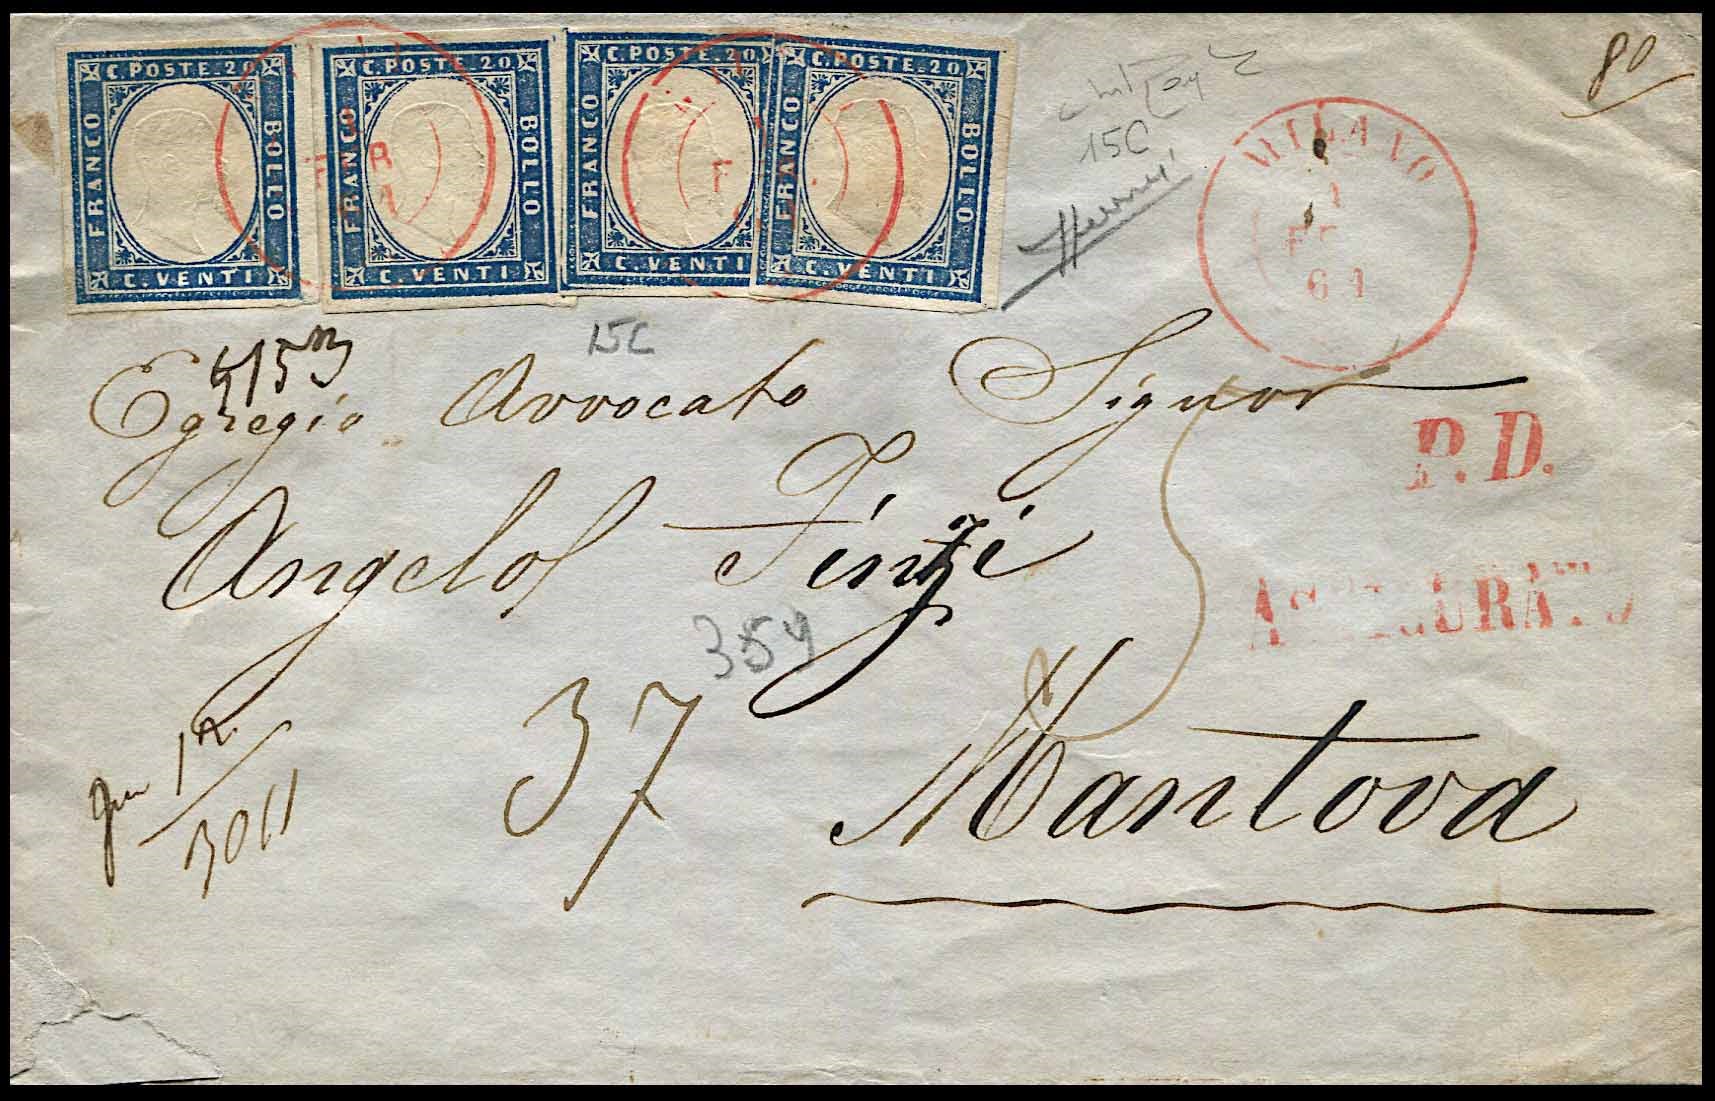 C. POSTE. 20 C. POSTE. 20 C. POSTE. 20 C. POSTE. 20
FRANCO BOLLO FRANCO BOLLO FRANCO FRANCO BOLLO
C. VENTI C. VENTI C. VENTI C. VENTI
80
15C
MILANO
61
15C
Egregio Avvocato Signor
P.D.
Angelo Finzi
ASSICURATO
354
37
Mantova
1
3011